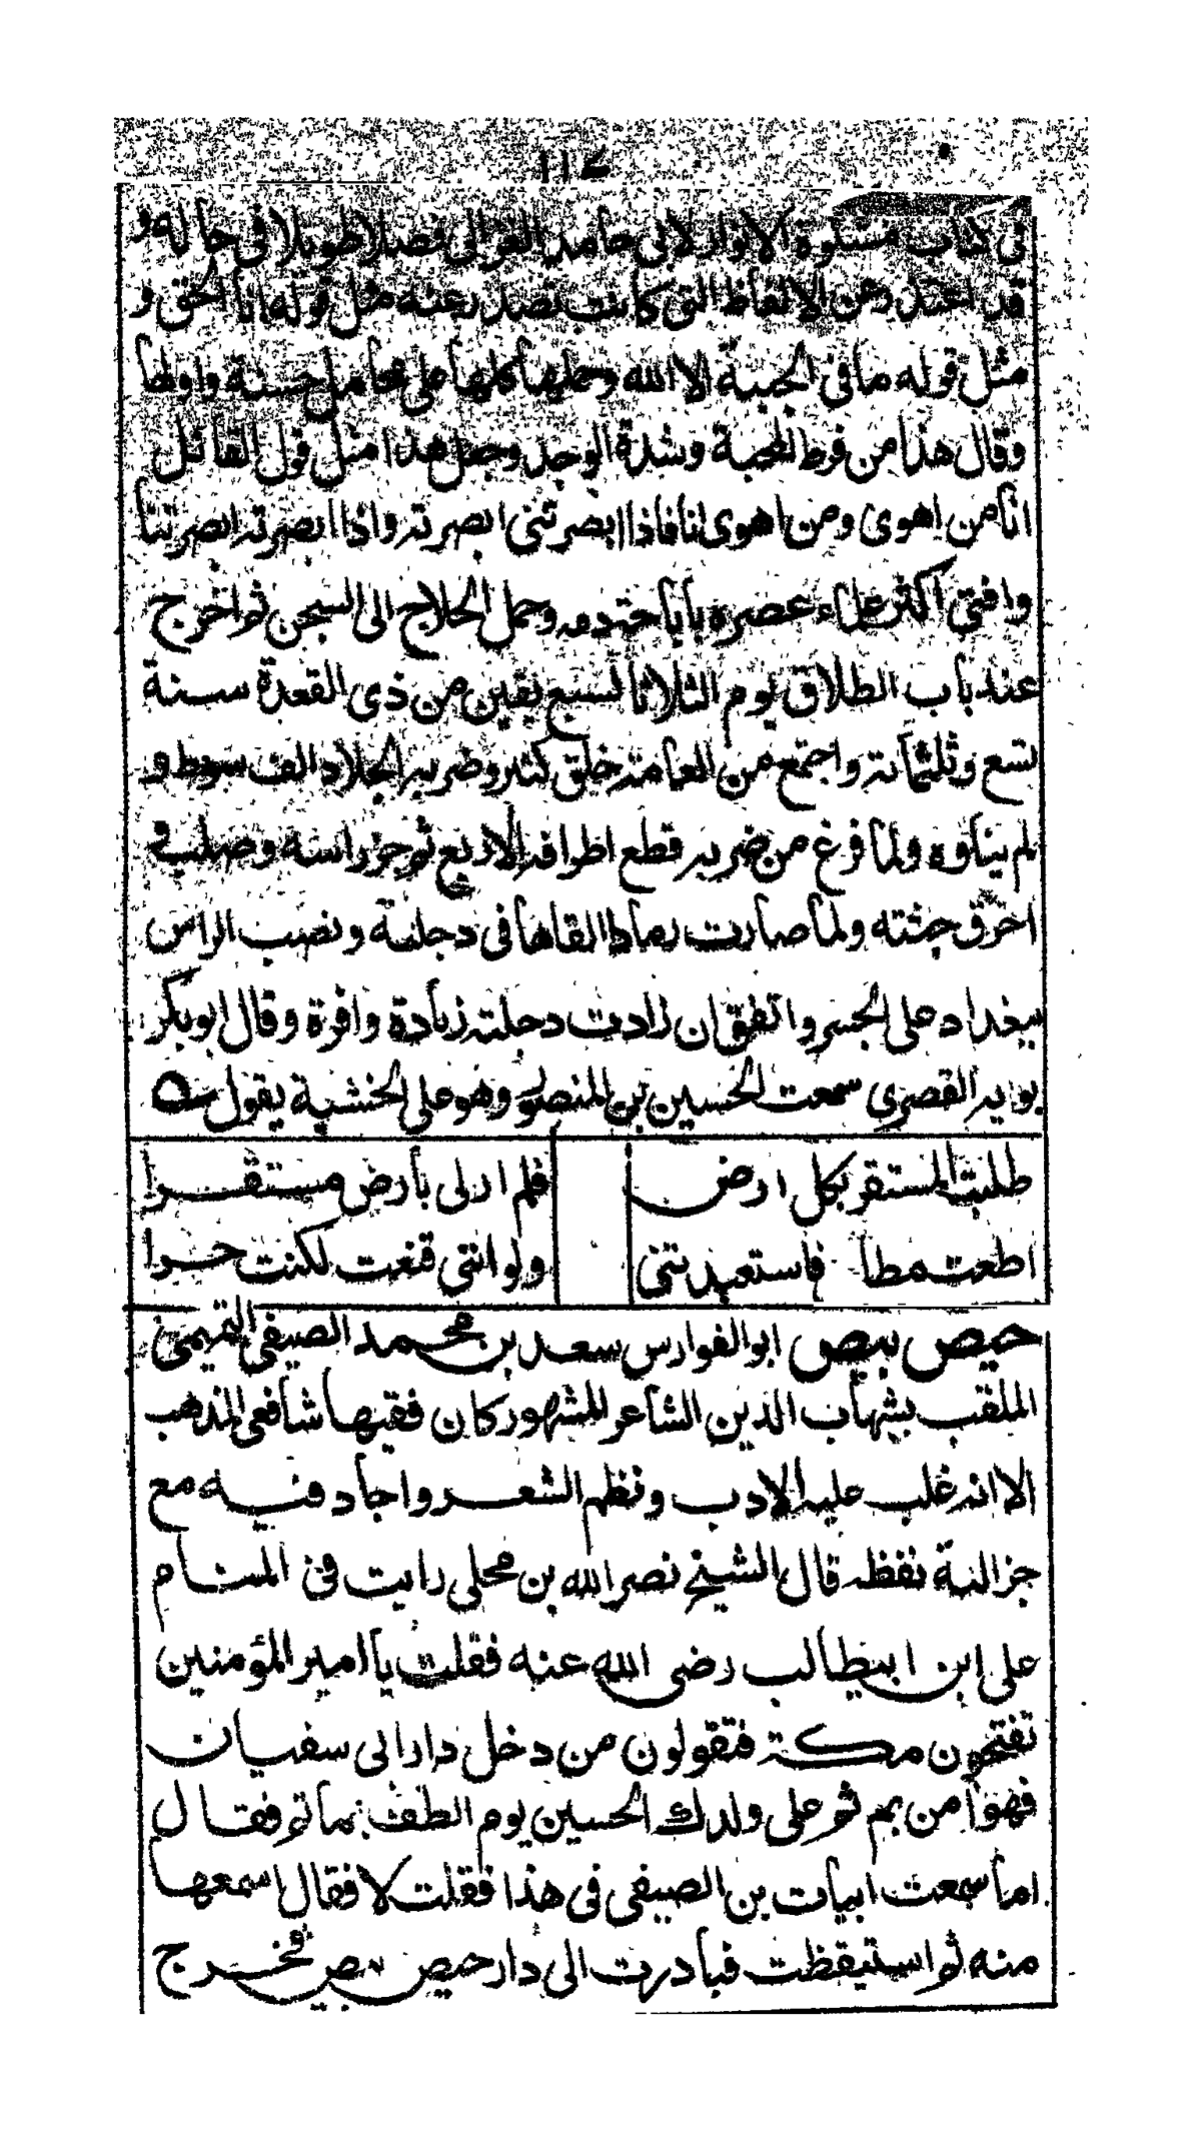 في كتاب مشكوة الانوار لابي حامد الغزالي فصلا طويلا في حاله و
قد اعتذر عن الالفاظ التي كانت تصدر عنه مثل قوله انا الحق و
مثل قوله ما في الجبة الا الله وحملها كلها على محامل حسنة واولها
وقال هذا من فرط المحبة وشدة الوجد وجعل هذا مثل قول القائل
انا من اهوى ومن اهوى انا فاذا ابصرتني ابصرته واذا ابصرته ابصرتنا
وافتى اكثر علماء عصره باباحة دمه وحمل الحلاج الى السجن ثم اخرج
عند باب الطلاق يوم الثلاثا لسبع بقين من ذي القعدة سنة
تسع وثلثمائة واجتمع من العامة خلق كثير وضربه الجلاد الف سوط و
لم يتاوه ولما فرغ من ضربه قطع اطرافه الاربع ثم جز راسه وصلب و
احرق جثته ولما صارت رمادا القاها في دجلة ونصب الراس
ببغداد على الجسر واتفق ان زادت دجلة زيادة وافرة وقال ابو بكر
بويه القصرى سمعت الحسين بن المنصور وهو على الخشبة يقول
طلبت المستقر بكل ارض فلم ار لي بارض مستقرا
اطعت مطا فاستعبدتني ولو انني قنعت لكنت حرا
حيص بيص ابو الفوارس سعد بن محمد الصيفي التميمي
الملقب بشهاب الدين الشاعر المشهور كان فقيها شافعي المذهب
الا انه غلب عليه الادب ونظم الشعر واجاد فيه مع
جزالة لفظه قال الشيخ نصر الله بن محلي رايت في المنام
على ابن ابيطالب رضى الله عنه فقلت يا امير المؤمنين
تفتحون مكة فتقولون من دخل دار ابى سفيان
فهو آمن بم ثم على ولدك الحسين يوم الطف بما تم فقال
اما سمعت ابيات بن الصيفى فى هذا فقلت لا فقال اسمعها
منه ثم استيقظت فبادرت الى دار حيص بيص فخرج